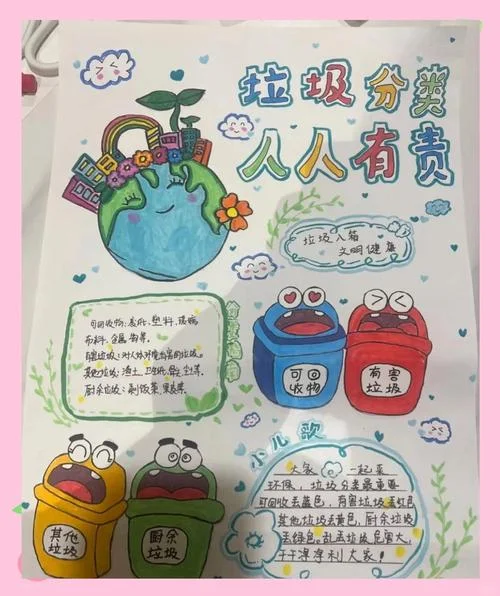 垃圾分类
人人有责
垃圾入箱
文明健康
可回收物:废纸,塑料,玻璃,
布料,金属等。
有害垃圾:对人体环境有害的垃圾。
其他垃圾:渣土,卫生纸,
厨余垃圾:剩饭菜,果皮等。
可回
收物
有害
垃圾
小儿歌
其他
垃圾
厨余
垃圾
大家一起来
环保,垃圾分类最重要
可回收丢蓝色,有害垃圾丢红色
其他垃圾丢黄色,厨余垃圾
丢绿色。乱丢垃圾危害大,
干干净净利大家!